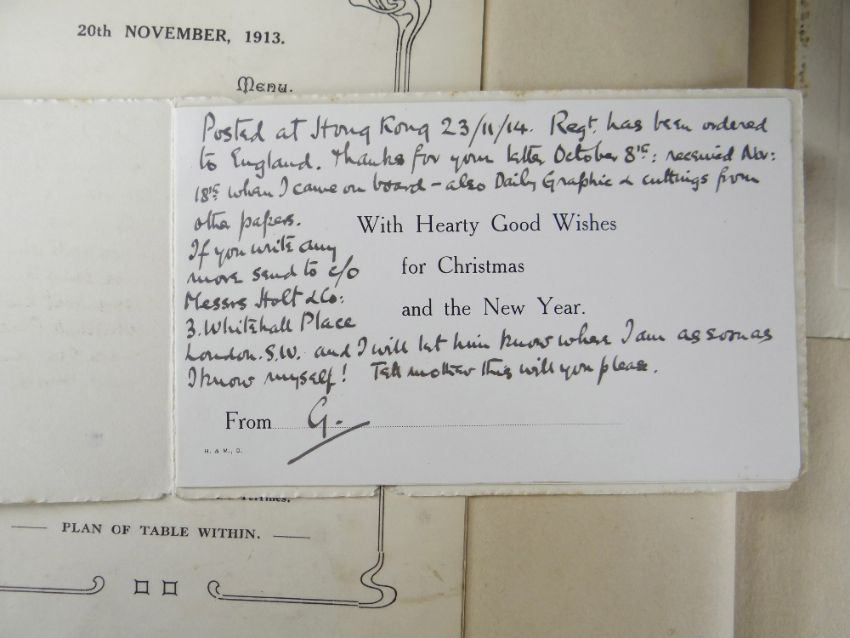 20th NOVEMBER, 1913.
Menu.
Posted at Hong Kong 23/11/14. Regt. has been ordered
to England. Thanks for your letter October 8th: received Nov:
18th when I came on board - also Daily Graphic & cuttings from
other papers.
With Hearty Good Wishes
for Christmas
and the New Year.
If you write any
more send to c/o
Messrs Holt & Co:
3. Whitehall Place
London. S.W. and I will let him know where I am as soon as
I know myself! Tell mother this will you please.
From G.
H. & M., D.
PLAN OF TABLE WITHIN.